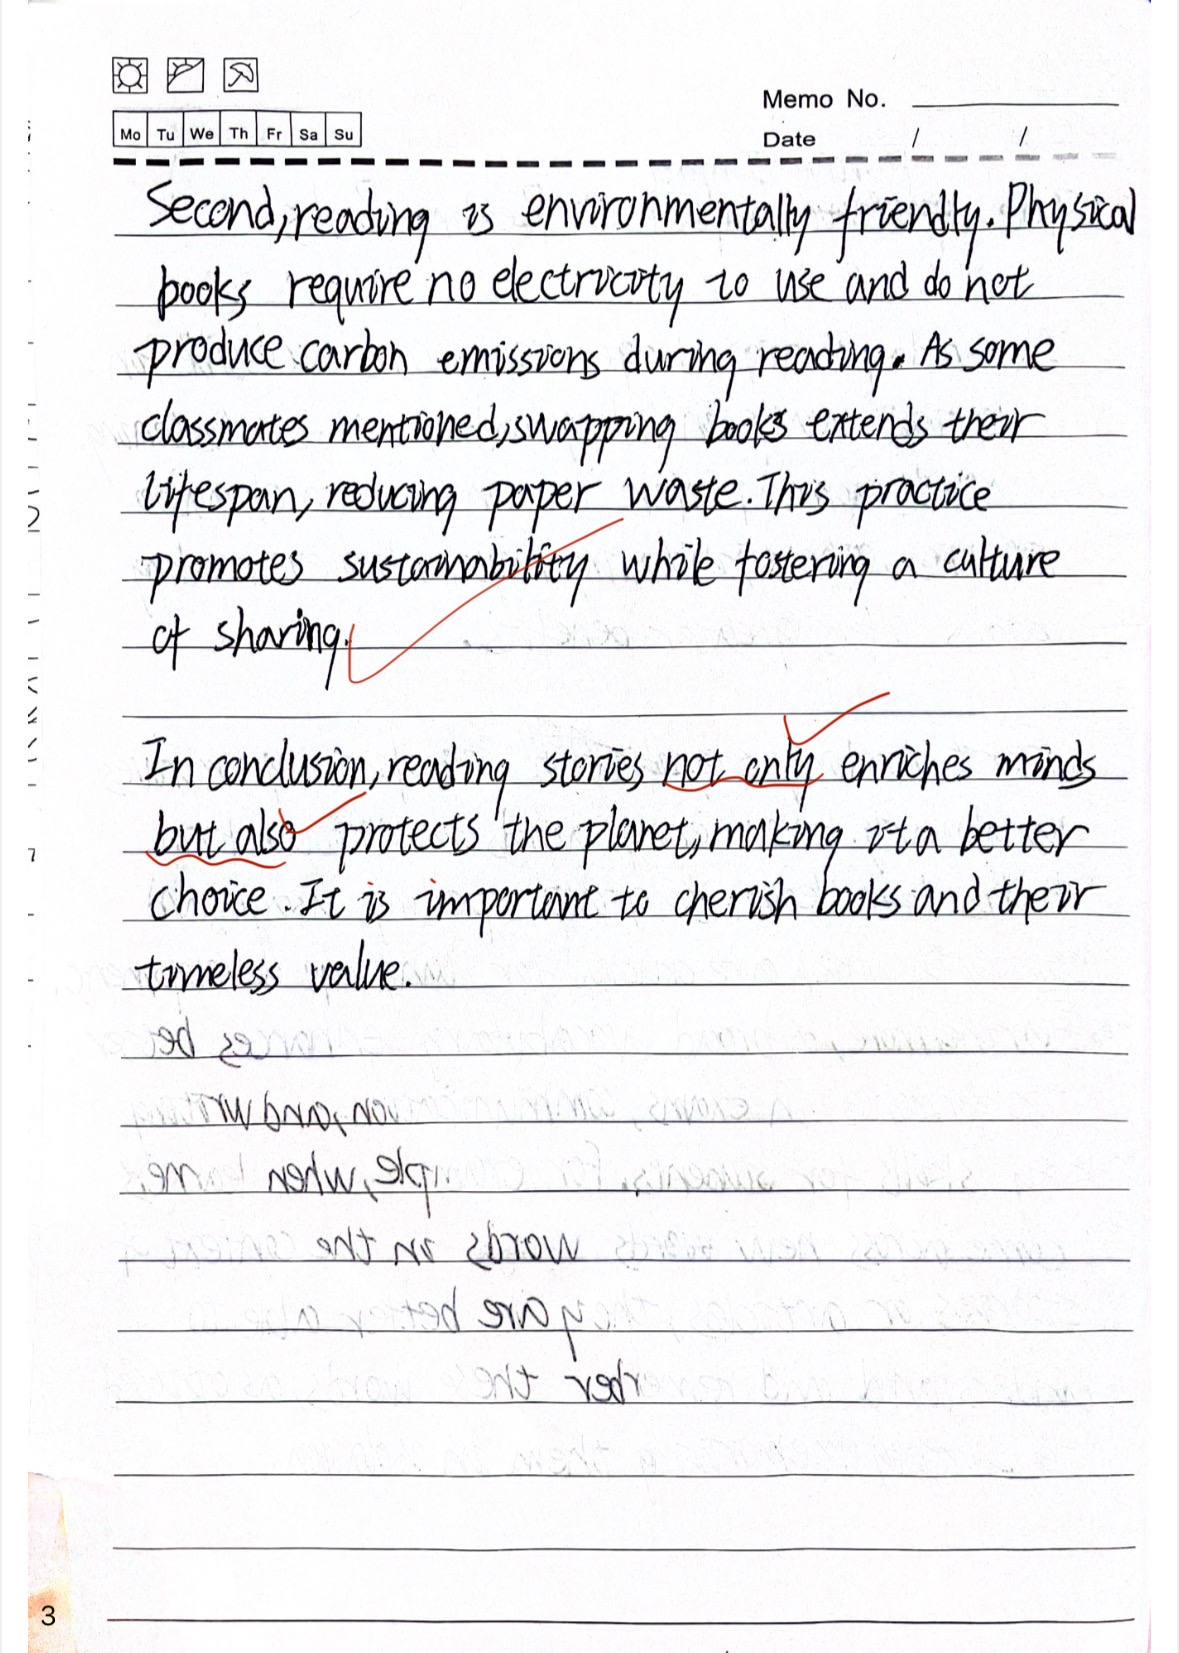 Memo No.
Mo Tu We Th Fr Sa Su
Date / /
Second, reading is environmentally friendly. Physical
books require no electricity to use and do not
produce carbon emissions during reading. As some
classmates mentioned, swapping books extends their
lifespan, reducing paper waste. This practice
promotes sustainability while fostering a culture
of sharing.
In conclusion, reading stories not only enriches minds
but also protects the planet, making it a better
choice. It is important to cherish books and their
timeless value.
3